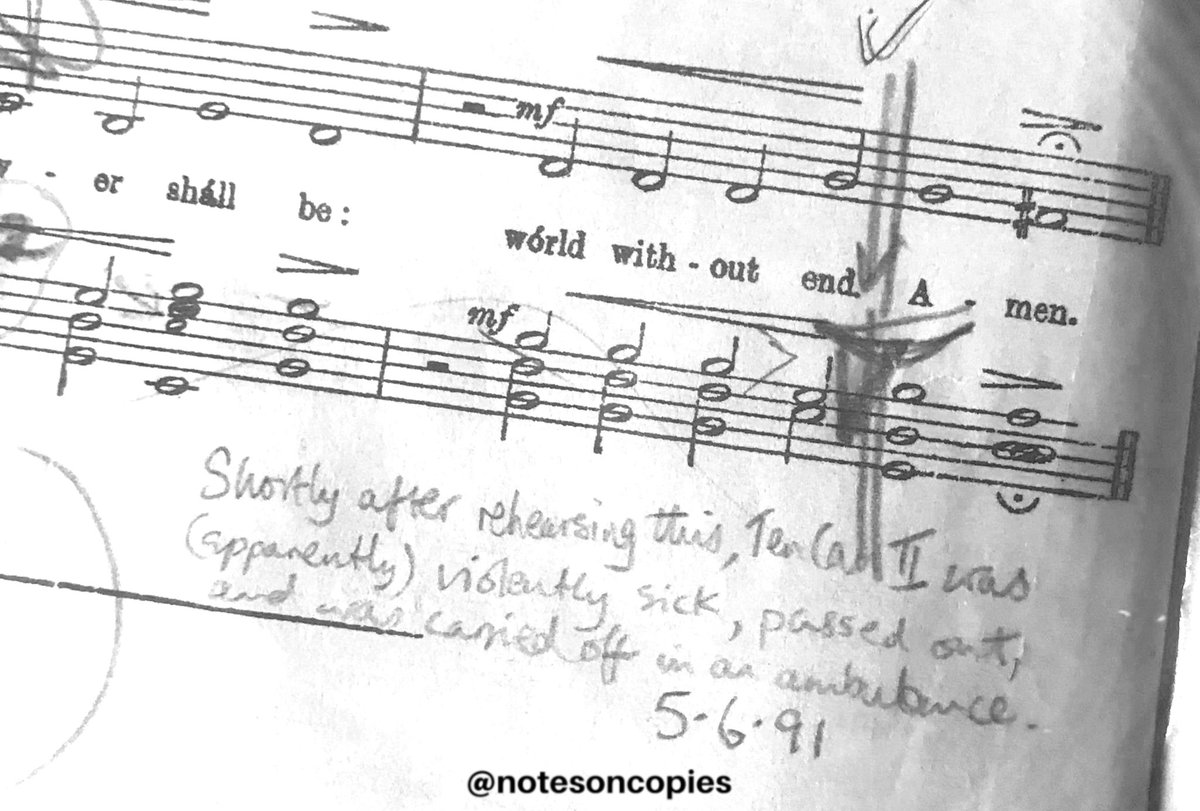 mf
er sháll be:
wórld with-out end. A - men.
mf
Shortly after rehearsing this, Ten Can II was
(apparently) violently sick, passed out,
and was carried off in an ambulance.
5.6.91
@notesoncopies